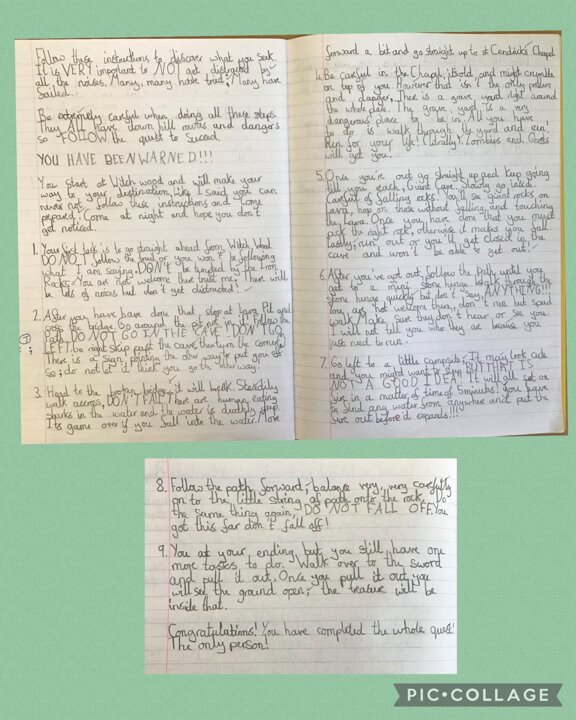 Follow these instructions to discover what you seek.
It is VERY important to NOT get distracted by
all the noises. Many, many have tried; Many have
failed.
Be extremely careful when doing all these steps.
Thus All have down hill routes and dangers
so FOLLOW the quest to succed.
YOU HAVE BEEN WARNED!!!
You start at Witch wood and will make your
way to your destination. Like I said, you can
never not follow these instructions and come
prepard. Come at night and hope you don't
get noticed.
1. Your first task is to go straight ahead from Witch Wood
DO NOT follow the trail or you won't be following
what I am saying. DON'T be tempted by the Iron
Rocks. You are not welcome there trust me. There will
be lots of noises but don't get distracted!
2. After you have have done that, stop at Lava Pit and
cross the bridge. Go around the pit and then follow the
Path. DO NOT GO IN THE CAVE! DON'T GO
LEFT. Go right skip past the cave, then turn the corner.
There is a sign pointing the other way to put you off
so; do not let it trick you go the other way.
3. Head to the broken bridge, it will break. Steadily
walk across, DON'T FALL! There are human eating
sharks in the water and the water is deathly deep.
Its game over if you fall into the water. Move
forward a bit and go straight up to st Cendrick's Chapel
4. Be careful in the Chapel, its old, and might crumble
on top of you. However that isn't the only problem
and danger. There is a grave yard right around
the whole place. The grave yard is a very
dangerous place to be in. All you have
to do is walk through the yard and run.
Run for your life! (literally). Zombies and Ghosts
will get you.
5. Once you're out go straight up and keep going
till you reach, Giant Cave. Slowly go inside.
Careful of falling rocks. You'll see giant rocks on
lava, hop on these without falling and touching
the lava. Once you have done that you must
pick the right rock, otherwise it makes you fall
lastly, run out or you'll get closed in the
cave and won't be able to get out!
6. After you've got out, follow the path until you
get to a mini stone hunge. Walk through the
stone hunge quickly but don't say ANYTHING!!!
You are not welcome there, don't run but speed
walk. Make sure they don't hear or see you
I will not tell you who they are because you
just need to run.
7. Go left to a little campsite. It may look cute
and you might want to stop BUT THAT IS
NOT A GOOD IDEA! It will all set on
fire in a matter of time of 5 minutes! You have
to find any water from anywhere and put the
fire out before it expands!!!!
8. Follow the path forward; balance very, very carefully
on to the little string of path onto the rock. Do
the same thing again, DO NOT FALL OFF. You
got this far don't fall off!
9. You at your ending, but you still have one
more tasks to do. Walk over to thy sword
and pull it out. Once you pull it out you
will see the ground open; the teasure will be
inside that.
Congratulations! You have completed the whole quest!
The only person!
PIC•COLLAGE